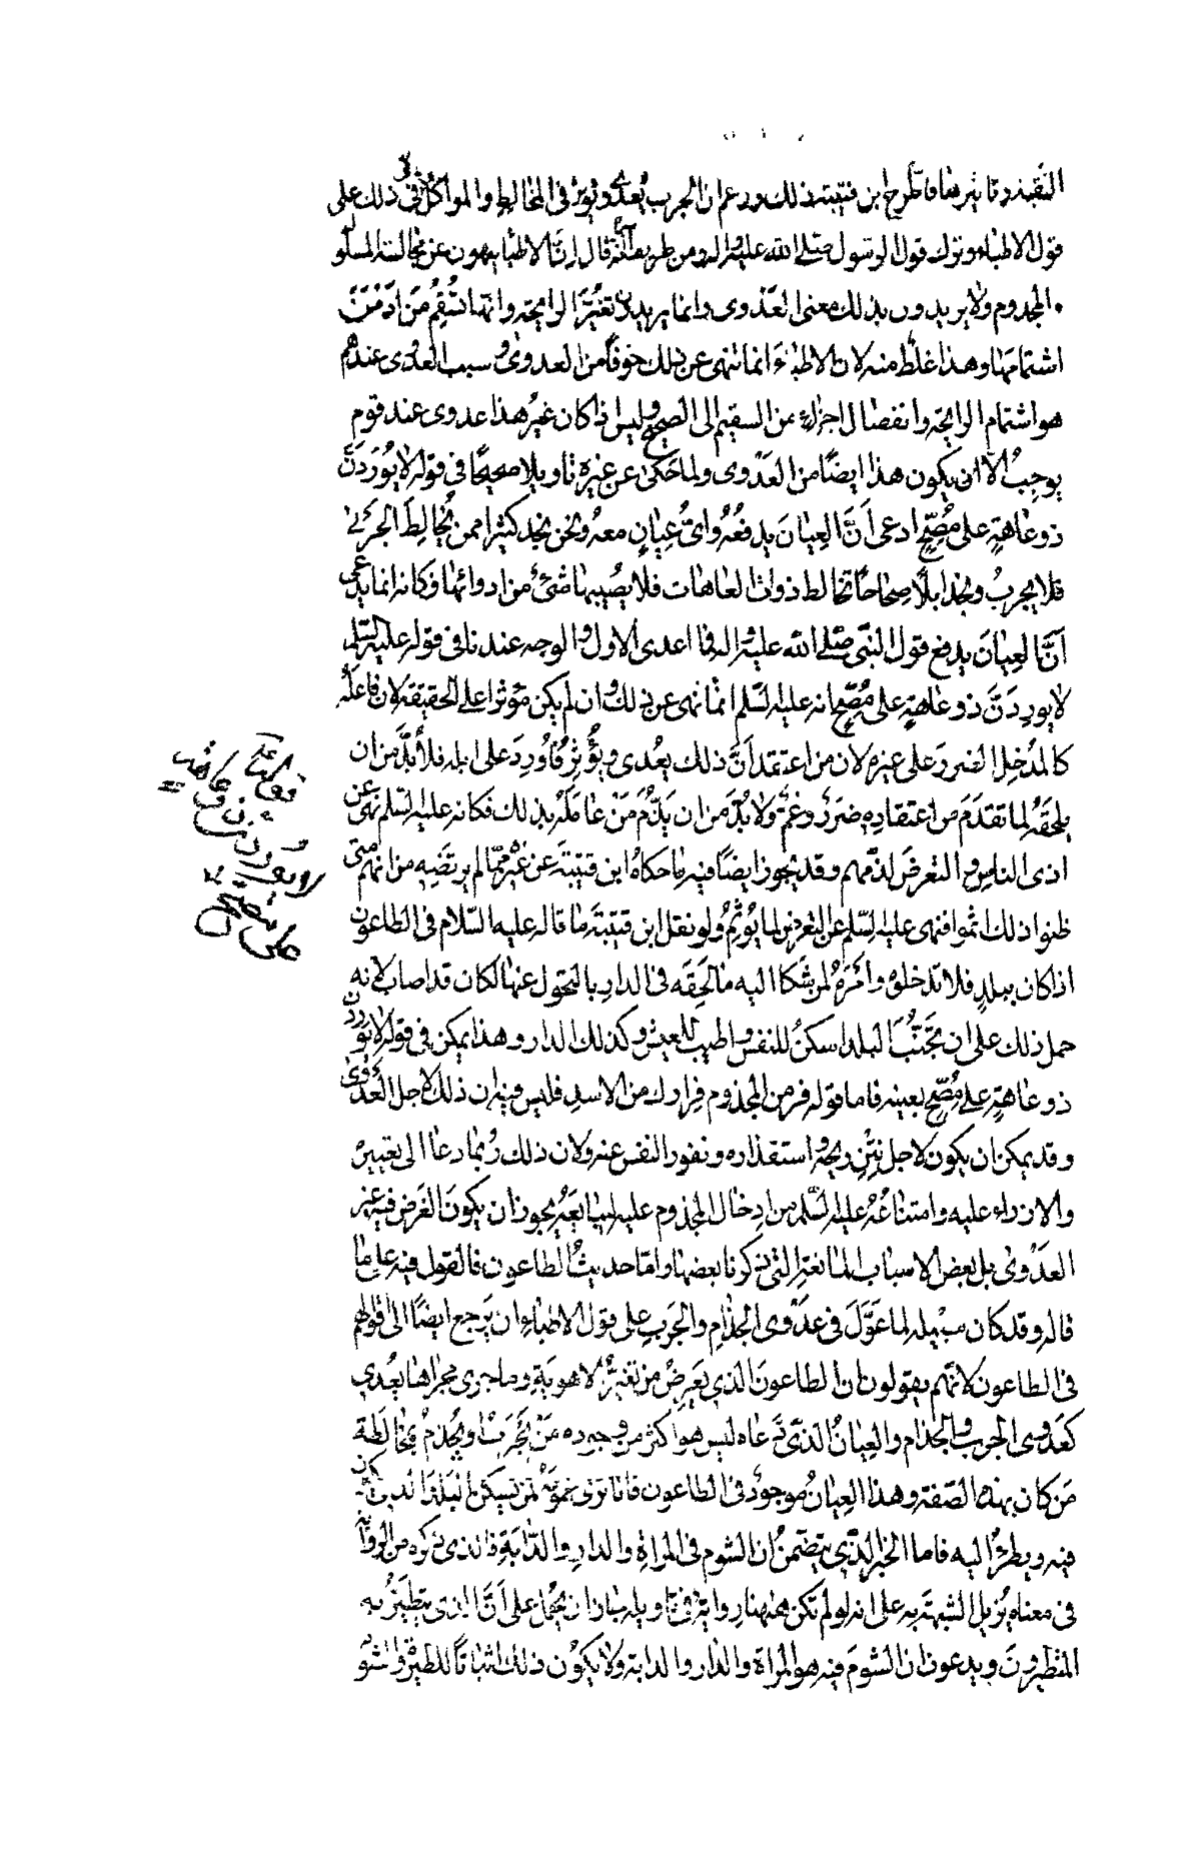 النقبة وتاثيرها فاطرح ابن قتيبة ذلك وزعم ان الجرب يعدي ويؤثر في المخالط والمواكل وعول في ذلك على
قول الاطباء وترك قول الرسول صلى الله عليه واله ومن طريف امره انه قال ان الاطباء ينهون عن مجالسة المسلول
والمجذوم ولا يريدون بذلك معنى العَدْوى وانما يريدون تغيُّر الرايحة وانها تُسْقِمُ مَن ادْمَنَ
اشتمامها وهذا غلط منه لان الاطباء انما تنهى عن ذلك خوفًا من العدوى وسبب العدوى عندهم
هو اشتمام الرايحة وانفصال اجزاء من السقيم الى الصحيح وليس اذا كان غيرُ هذا عدوى عند قوم
يوجبُ الّا ان يكون هذا ايضًا من العَدْوى ولما حَكىٰ عن غيره تاويلا صحيحًا في قوله لا يُورَدَنَّ
ذو عاهةٍ على مُصِحٍّ ادعى اَنَّ العِيانَ يدفعُهُ واىُّ عِيانٍ معهُ ونحن نجد كثيرا ممن يُخالِطُ الجَرْبى
فلا يجربُ ونجد ابلًا صِحاحًا تخالط ذوات العاهات فلا يُصيبها شئ من ادوائها فكانه انما يدعي
اَنَّ العِيانَ يدفع قول النبى صلى الله عليه واله فما اعدى الاول والوجه عندنا فى قوله عليه السّلم
لا يورِدَنَّ ذو عاهةٍ على مُصِحٍّ انه عليه السّلم انما نهى عن ذلك وان لم يكن مؤثرا على الحقيقة لان فاعله
كالمُدْخِل الضرر على غيره لان من اعتقد اَنَّ ذلك يُعدى ويُؤَثِّر فاُورِدَ على ابله فلا بُدَّ من ان
يلحَقَهُ لما تقدَمَ من اعتقادِه ضرر وغمٌّ ولا بُدَّ من ان يذُمَّ مَنْ عامَلَهُ بذلك فكانه عليه السّلم نهى عن
اذى الناس والتعرضَ لذمهم وقد يجوز ايضًا فيه ما حكاهُ ابن قتيبةَ عن غيره مما لم يرتضيه من انهم متى
ظنوا ذلك اثموا فنهى عليه السّلم عن التعرض لما يُؤثِمُ ولو نقل ابن قتيبَة ما قاله عليه السّلام فى الطاعون
اذا كان ببلدٍ فلا تدخلوه وامرَهُ لمن شكا اليه ما لحِقَه فى الدارِ بالتحول عنها لكان قد اصاب لانه
حمل ذلك على ان تجَنُّبَ البلد اسكنُ للنفس واطيبُ للعيش وكذلك الدار وهذا يمكن فى قوله لا يُورَدنّ
ذو عاهةٍ على مُصِحٍّ بعينه فاما قوله فر من المجذوم فِرارك من الاسد فليس فيه ان ذلك لاجل العَدْوى
وقد يمكن ان يكون لاجل نتْنِ ريحه واستقذاره ونفور النفس عنه ولان ذلك رُبما دعا الى تعييره
والازراء عليه وامتناعُهُ عليه السّلم من ادخال المجذوم عليه ليبايعَهُ يجوز ان يكونَ الغَرَض فيه غير
العَدْوىٰ بل بعض الاسباب المانعة التى ذكرنا بعضها واما حديثُ الطاعون فالقول فيه على ما
قاله وقد كان سبيله لما عَوَّلَ فى عدْوى الجذام والجَرَب على قول الاطباء ان يَرجع ايضًا الى اقوالهم
فى الطاعون لانهم يقولون ان الطاعونَ الذى يَعرِضُ من تغيُّر الاهويَةِ وما جرى مجراها يُعدي
كعَدوى الجرب والجُذام والعِيانُ الذى ادَّعاه ليس هو اكثر من وجوده مَنْ يَجْرَبُ او يُجذَمُ بمخالَطة
مَن كان بهذه الصّفة وهذا العِيانُ موجودٌ فى الطاعون فانا نرى عمومَهُ لمن يسكن البَلَدَ الذى يكون
فيه ويطرأُ اليه فاما الخبر الذي يتضمنُ ان الشوم فى المراةِ والدارِ والدّابَةِ فالذى ذكره من الرواية
فى معناه يُزيل الشبهة به على انه لو لم تكن هاهنا رواية فى تاويله جاز ان يُحمل على اَنَّ الذى يتطيَّرُ به
المتطيرونَ ويدعون ان الشومَ فيه هو المراة والدار والدابة ولا يكون ذلك اثباتًا للطيرة والشو
لا يوردن
ذو عاهة
على مصح